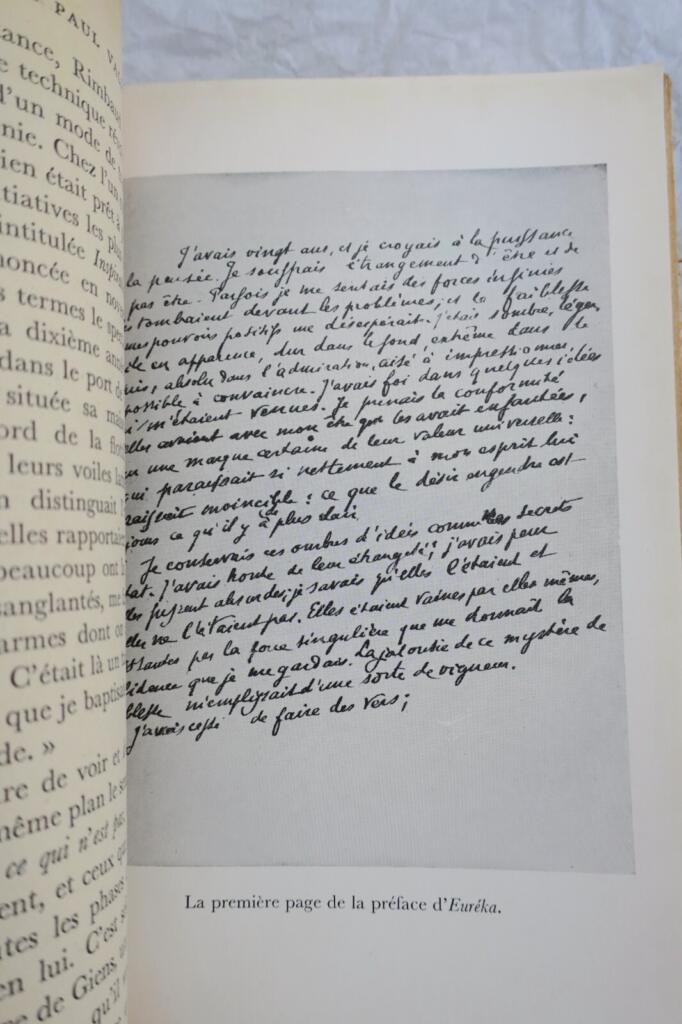 PAUL VA
tance, Rimbau
e technique ré
d'un mode de
nie. Chez l'un
ien était prêt à
tiatives les plu
intitulée Insp
noncée en no
s termes le spe
a dixième ann
dans le port d
située sa ma
ord de la flo
leurs voiles la
n distinguait
elles rapportai
beaucoup ont
sanglantés, me
armes dont on
C'était là un
que je baptis
de. »
re de voir et
même plan le s
ce qui n'est pas
ent, et ceux qu
tes les phases
en lui. C'est s
re de Giens,
qu'il
J'avais vingt ans, et je croyais à la puissance
la pensée. Je souffrais étrangement d'être et de
pas être. Parfois je me sentais des forces infinies
s tombaient devant les problèmes; et la faiblesse
mes pouvoirs positifs me désespérait. J'étais sombre, léger,
ile en apparence, dur dans le fond, extrême dans le
ris, absolu dans l'admiration, aisé à impressionner,
possible à convaincre. J'avais foi dans quelques idées
i m'étaient venues. Je prenais la conformité
elles avaient avec mon être qui les avait enfantées,
ur une marque certaine de leur valeur universelle:
qui paraissait si nettement à mon esprit lui
raissait invincible: ce que le désir engendre est
jours ce qu'il y a de plus clair.
Je conservais ces ombres d'idées comme les secrets
tat. J'avais honte de leur étrangeté; j'avais peur
les fussent absurdes; je savais qu'elles l'étaient et
elles ne l'étaient pas. Elles étaient vaines par elles mêmes,
issantes par la force singulière que me donnait la
fidence que je me gardais. La jalousie de ce mystère de
blesse m'emplissait d'une sorte de vigueur.
J'avais cessé de faire des vers;
La première page de la préface d'Euréka.